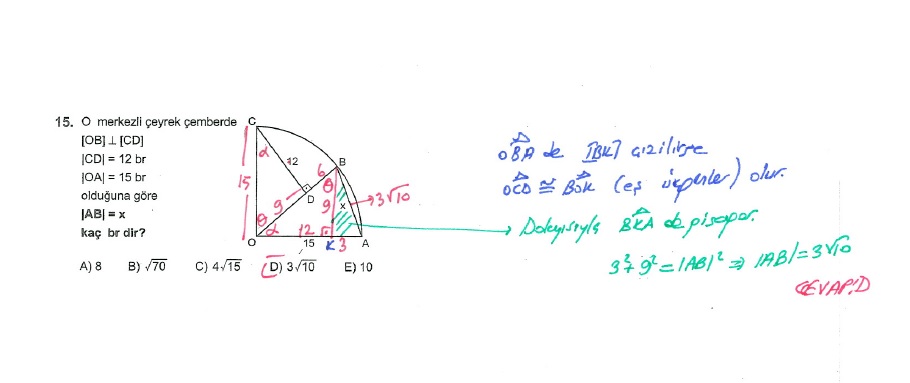 15. O merkezli çeyrek çemberde
[OB] ⊥ [CD]
|CD| = 12 br
|OA| = 15 br
olduğuna göre
|AB| = x
kaç br dir?
A) 8 B) √70 C) 4√15 D) 3√10 E) 10
C
α
12
15
6
B
θ
3√10
D
9
9
x
θ
α
12
O
15
K
3
A
OBA de [BK] çizilirse
OCD ≅ BOK (eş üçgenler) olur.
Dolayısıyla BKA de pisagor.
3² + 9² = |AB|² ⇒ |AB| = 3√10
CEVAP:D